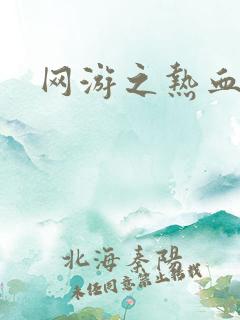 网游之热血
北海秦阳
未经同意禁止转载